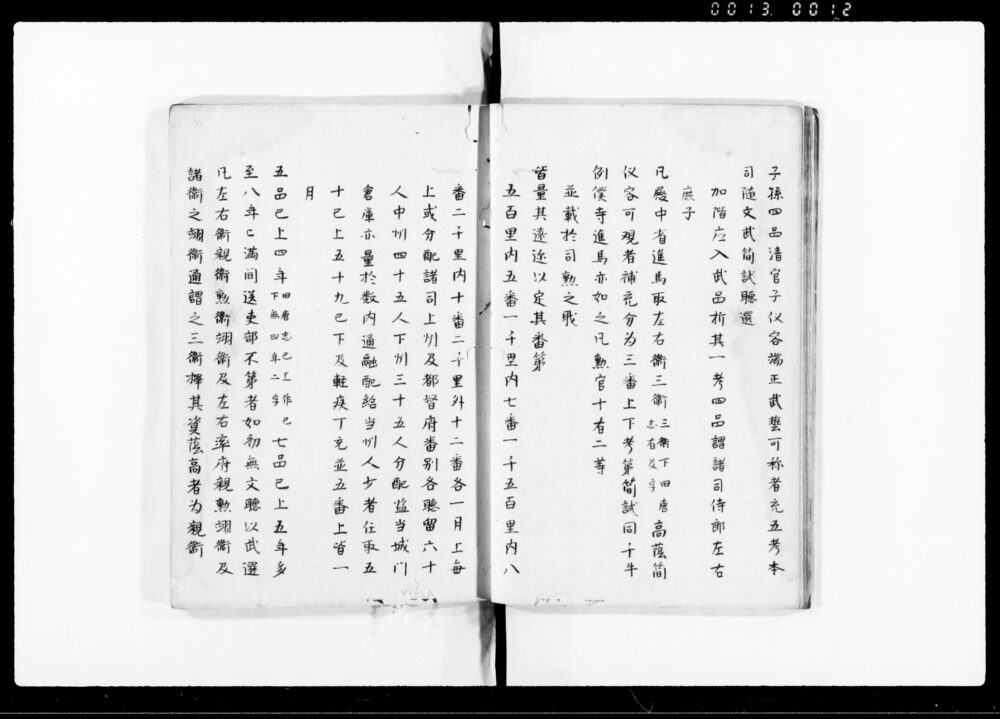 0013 0012
子孫四品清官子仪容端正武藝可称者充五考本
司随文武简試聽選
加階应入武品折其一考四品謂諸司侍郎左右
庶子
凡殿中省進馬取左右衛三衛三衛下旧唐志有及字高蔭简
仪容可观者補充分为三番上下考第简試同千牛
例僕寺進馬亦如之凡勲官十有二等
並載於司勲之职
皆量其遠迩以定其番第
五百里内五番一千里内七番一千五百里内八
番二千里内十番二千里外十二番各一月上每
上或分配諸司上州及都督府番别各聽留六十
人中州四十五人下州三十五人分配监当城门
倉庫亦量於数内通融配給当州人少者任取五
十已上五十九已下及軽疾丁充並五番上皆一
月
五品已上四年旧唐志已上作已下無四年二字七品已上五年多
至八年〻满间送吏部不第者如初無文聽以武選
凡左右衛親衛勲衛翊衛及左右率府親勲翊衛及
諸衛之翊衛通謂之三衛擇其資蔭高者为親衛